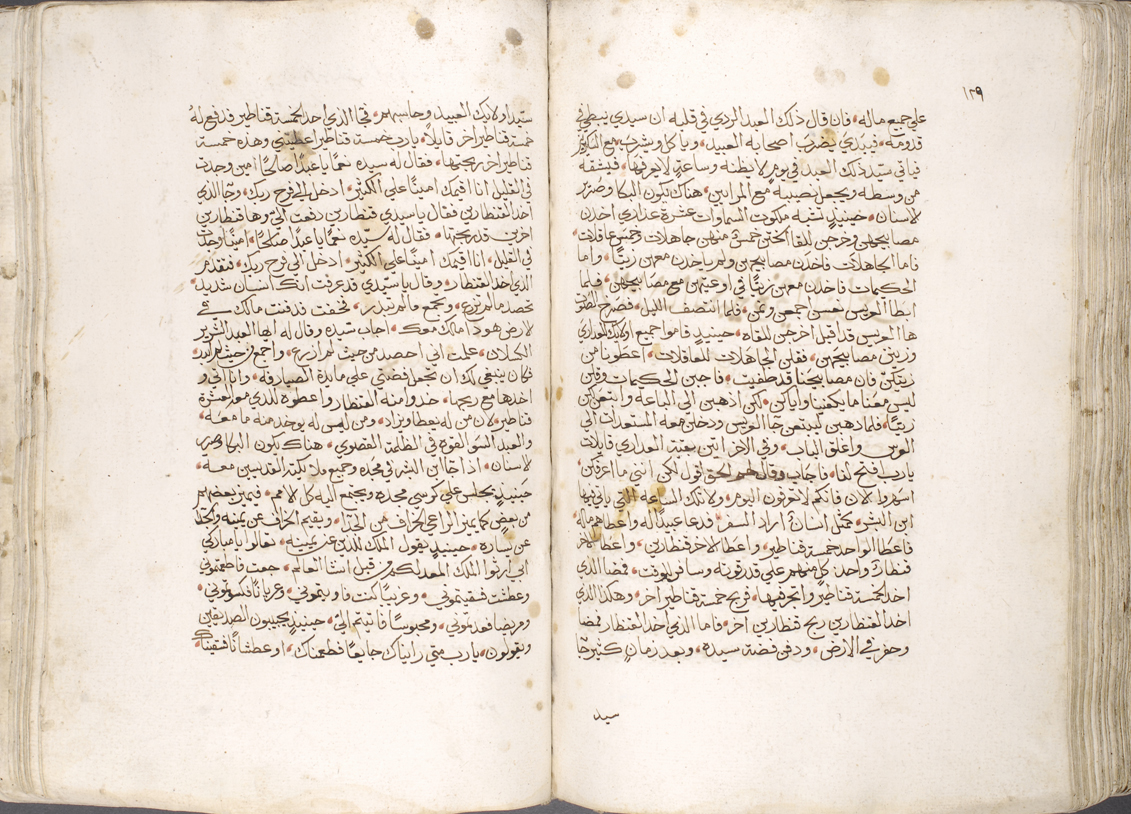 ١٢٩
على جميع ماله فان قال ذلك العبد الردي في قلبه ان سيدي يبطي في
قدومه فيبدي يضرب اصحابه العبيد ويا كل ويشرب مع المسكرين
فياتي سيد ذلك العبد في يوم لا يظنه وساعة لا يعرفها فيشقه
من وسطه ويجعل نصيبه مع المرايين هناك يكون البكا وصرير
لاسنان حينيذ تشبه ملكوت السماوات عشرة عذاري اخذن
مصابيحهن وخرجن للقا الختن خمسة منهن جاهلات وخمس عاقلات
فاما الجاهلات فاخذن مصابيحهن ولم ياخذن معهن زيتًا واما
الحكيمات فاخذن معهن زيتًا في اوعيتهن مع مصابيحهن فلما
ابطا العريس نعسن اجمعن ونمن فلما انتصف الليل فصرخ الصوت
ها العريس قد اقبل اخرجن للقاه حينيذ قاموا جميع اوليك العذاري
وزينن مصابيحهن فقلن الجاهلات للعاقلات اعطونا من
زيتكن فان مصابيحنا قد طفيت فاجبن الحكيمات وقلن
ليس معنا ما يكفينا واياكن لكن اذهبن الى الباعة وابتعن لكن
زيتًا فلما ذهبن ليبتعن جا العريس ودخلن معه المستعدات الى
العرس واغلق الباب وفي الاخر اتين بقية العذاري قايلات
يارب افتح لنا فاجاب وقال لهم الحق اقول لكن انني ما اعرفكن
اسهروا لان فانكم لا تعرفون اليوم ولا تلك الساعة التي ياتي فيها
ابن البشر كمثل انسان اراد السفر فدعا عبيدًا له واعطاهم ماله
فاعطا الواحد خمسة قناطير واعطا لاخر قنطارين واعطا لاخر
قنطار واحد كل منهم على قدر قوته وسافر للوقت فمضا الذي
اخذ الخمسة قناطير واتجر فيها فربح خمسة قناطير اخر وهكذا الذي
اخذ القنطارين ربح قنطارين اخر فاما الذي اخذ القنطار فمضا
وحفر في الارض ودفن فضة سيده وبعد زمان كثير جا
سيد
سيد اوليك العبيد وحاسبهم فجا الذي اخذ الخمسة قناطير فدفع له
خمسة قناطير اخر قايلاً يارب خمسة قناطير اعطيتني وهذه خمسة
قناطير اخر ربحتها فقال له سيده نعمًا يا عبدًا صالحًا امين وجدت
في القليل انا اقيمك امينًا على الكثير ادخل الى فرح ربك وجا الذي
اخذ القنطارين فقال يا سيدي قنطارين دفعت الي وها قنطارين
اخرين قد ربحتها فقال له سيده نعمًا يا عبدًا صالحًا امينًا وجدت
في القليل انا اقيمك امينًا على الكثير ادخل الى فرح ربك فتقدم
الذي اخذ القنطار وقال يا سيدي قد عرفت انك انسان شديد
تحصد ما لم تزرع وتجمع ما لم تبذر فخفت فدفنت مالك في
لارض هوذا مالك معك اجاب سيده وقال له ايها العبد الشرير
الكسلان علمت اني احصد من حيث لم ازرع واجمع من حيث لم ابذر
فكان ينبغي لك ان تجعل فضتي على مايدة الصيارفه وانا اتي و
اخذها مع ربحها خذوا منه القنطار واعطوه للذي معه العشرة
قناطير لان من له يعطا ويزاد ومن ليس له يوخذ منه ما معه
والعبد السو القوه في الظلمة القصوي هناك يكون البكا وصرير
لاسنان اذا جا ابن البشر في مجده وجميع ملايكته القديسين معه
حينيذ يجلس على كرسي مجده ويجتمع اليه كل لامم فيميز بعضهم
من بعض كما يميز الراعي الخراف من الجدا ويقيم الخراف عن يمينه والجدا
عن يساره حينيذ يقول الملك للذين عن يمينه تعالوا يا مباركي
ابي ارثوا الملك المعد لكم من قبل انشا العالم جعت فاطعمتموني
وعطشت فسقيتموني وغريبًا كنت فاويتموني وعريانًا فكسوتموني
ومريضا فعدتموني ومحبوسًا فاتيتم الي حينيذ يجيبون الصديقين
ويقولون يارب متي رايناك جايعًا فطعمناك او عطشانًا فسقيناك